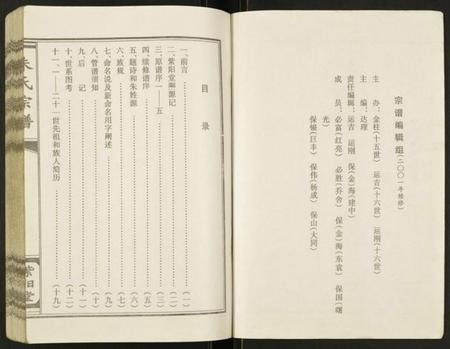 宗谱编辑组(二〇〇一年续修)
主办：金柱(十五世) 运吉(十六世) 运刚(十六世)
主编：达理
责任编辑：运吉 运刚 保(金)海(建中)
成员：必富(红亮) 必胜(乔舍) 保(金)海(东袁) 保国(曙
光)
保银(巨丰) 保伟(杨成) 保山(大同)
目录
一、前言……(一)
二、紫阳堂渊源记……(二)
三、原谱序一——五……(三)
四、续修谱序……(五)
五、题诗和朱姓源……(六)
六、族规……(七)
七、命名说及新命名用字阐述……(九)
八、管谱须知……(十)
九、后记……(十一)
十、世系图考……(十二)
十一、一——二十一世先祖和族人简历……(十九)
朱氏宗谱
紫阳堂